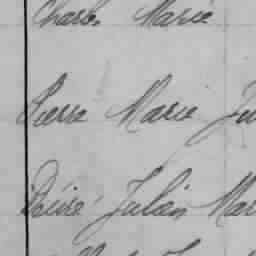 Charles Marie
Pierre Marie Ju
Désiré Julien Mar